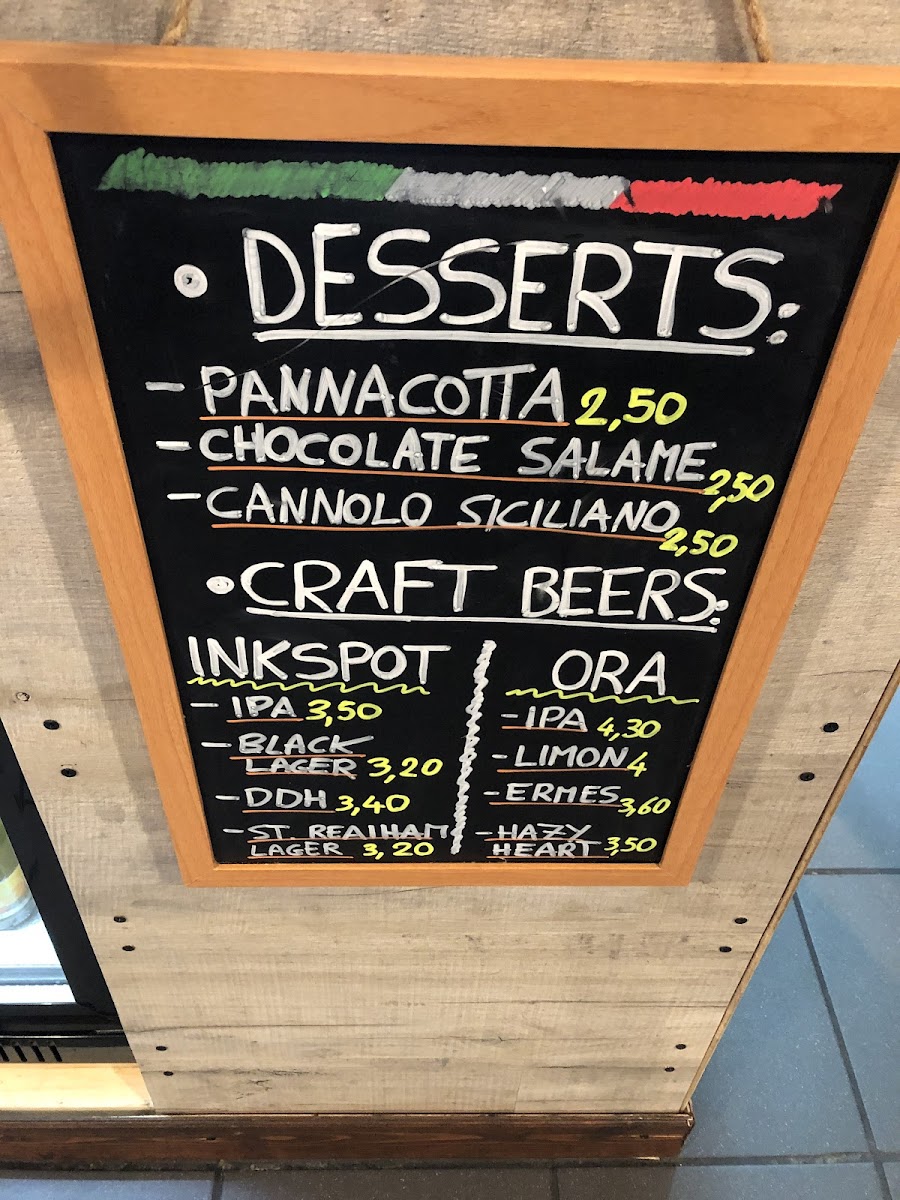 • DESSERTS:
- PANNACOTTA 2,50
- CHOCOLATE SALAME 2,50
- CANNOLO SICILIANO 2,50
• CRAFT BEERS:
INKSPOT
- IPA 3,50
- BLACK
LAGER 3,20
- DDH 3,40
- ST. REATHAM
LAGER 3,20
ORA
- IPA 4,30
- LIMON 4
- ERMES 3,60
- HAZY
HEART 3,50